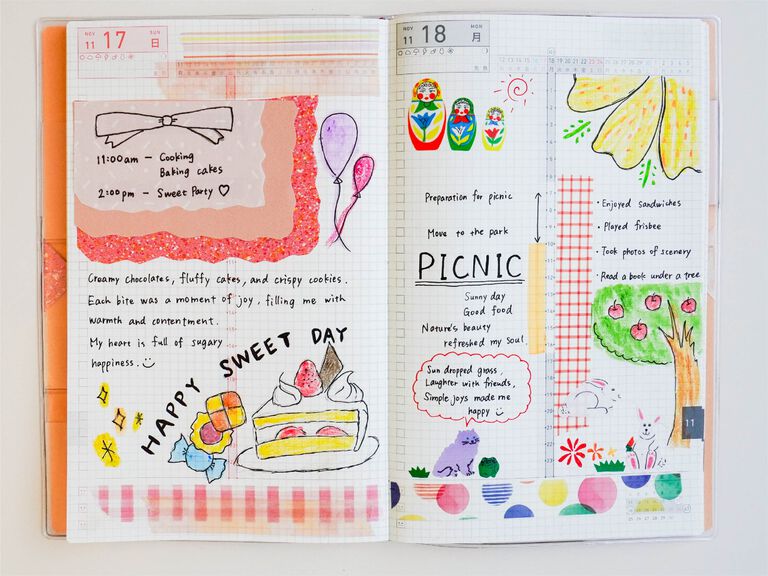 NOV SUN
11 17 日
11:00am – Cooking
Baking cakes
2:00pm – Sweet Party ♡
Creamy chocolates, fluffy cakes, and crispy cookies.
Each bite was a moment of joy, filling me with
warmth and contentment.
My heart is full of sugary
happiness.
HAPPY SWEET DAY
NOV MON
11 18 月
Preparation for picnic
Move to the park
PICNIC
Sunny day
Good food
Nature's beauty
refreshed my soul.
Sun dropped grass,
Laughter with friends,
Simple joys made me
happy
・Enjoyed sandwiches
・Played frisbee
・Took photos of scenery
・Read a book under a tree
11